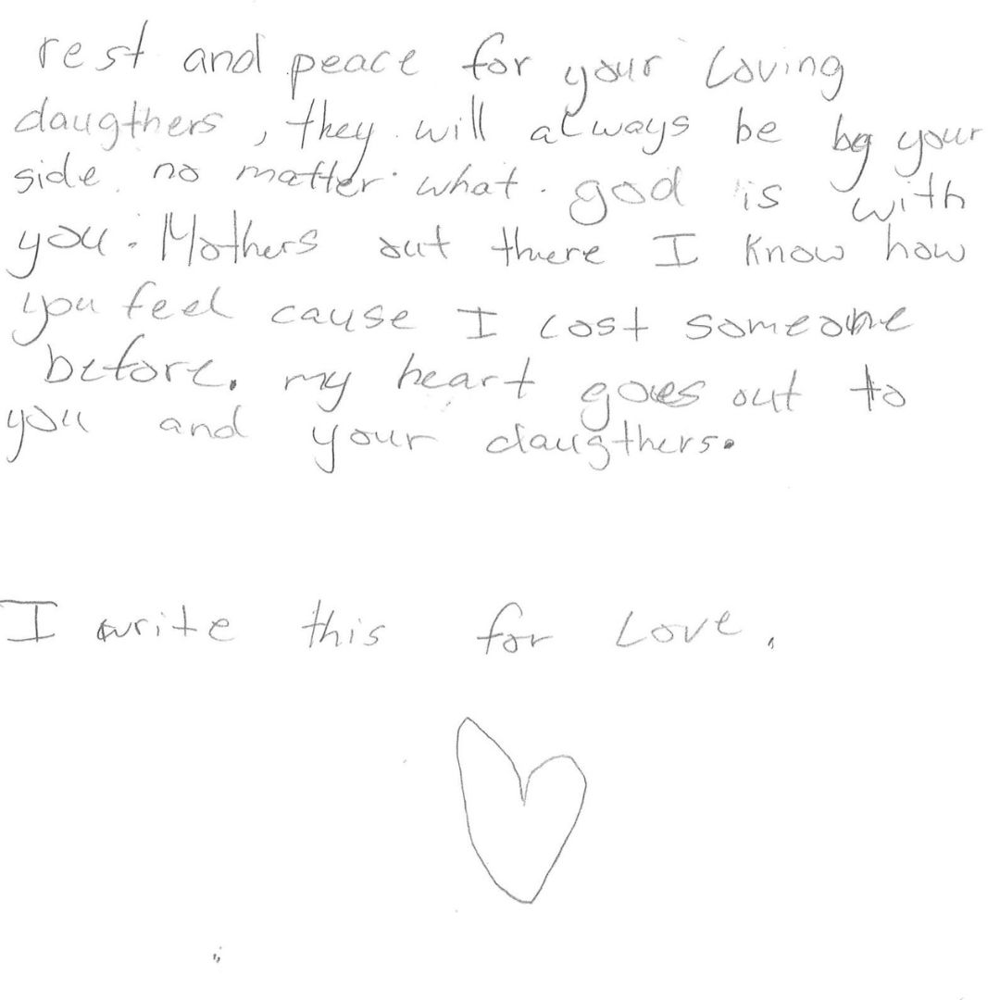 rest and peace for your Loving
daugthers, they will always be by your
side no matter what. god is with
you. Mothers out there I know how
you feel cause I lost someone
before. my heart goes out to
you and your daugthers.
I write this for Love.